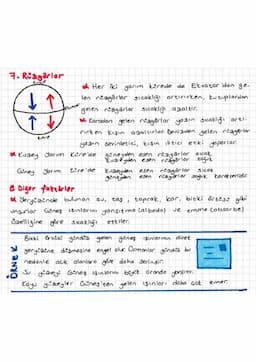 7. Rüzgârlar
* Her iki yarım kürede de Ekvator'dan ge-
len rüzgârlar sıcaklığı artırırken, kutuplardan
gelen rüzgârlar sıcaklığı azaltır.
* Karadan gelen rüzgârlar yazın sıcaklığı artı-
rırken kışın azaltırlar. Denizden gelen rüzgârlar
yazın serinletici, kışın ılıtıcı etki yaparlar.
* Kuzey Yarım Küre'de güneyden esen rüzgârlar sıcak
kuzeyden esen rüzgârlar soğuk
Güney Yarım Küre'de kuzeyden esen rüzgârlar sıcak
güneyden esen rüzgârlar soğuk karakterlidir
8 Diğer faktörler
* Yeryüzünde bulunan su, taş, toprak, kar, bitki örtüsü gibi
unsurlar Güneş ışınlarını yansıtma (albedo) ve emme (absorbe)
özelliğine göre sıcaklığı etkiler.
ÖRNEK
Bitki örtüsü gündüz gelen güneş ışınlarının direkt
yeryüzüne düşmesine engel olur. Ormanlar gündüz bu
nedenle açık alanlara göre daha
Su yüzeyi Güneş ışınlarını büyük oranda yansıtır.
Koyu yüzeyler Güneş'ten gelen ışınları daha çok emer.